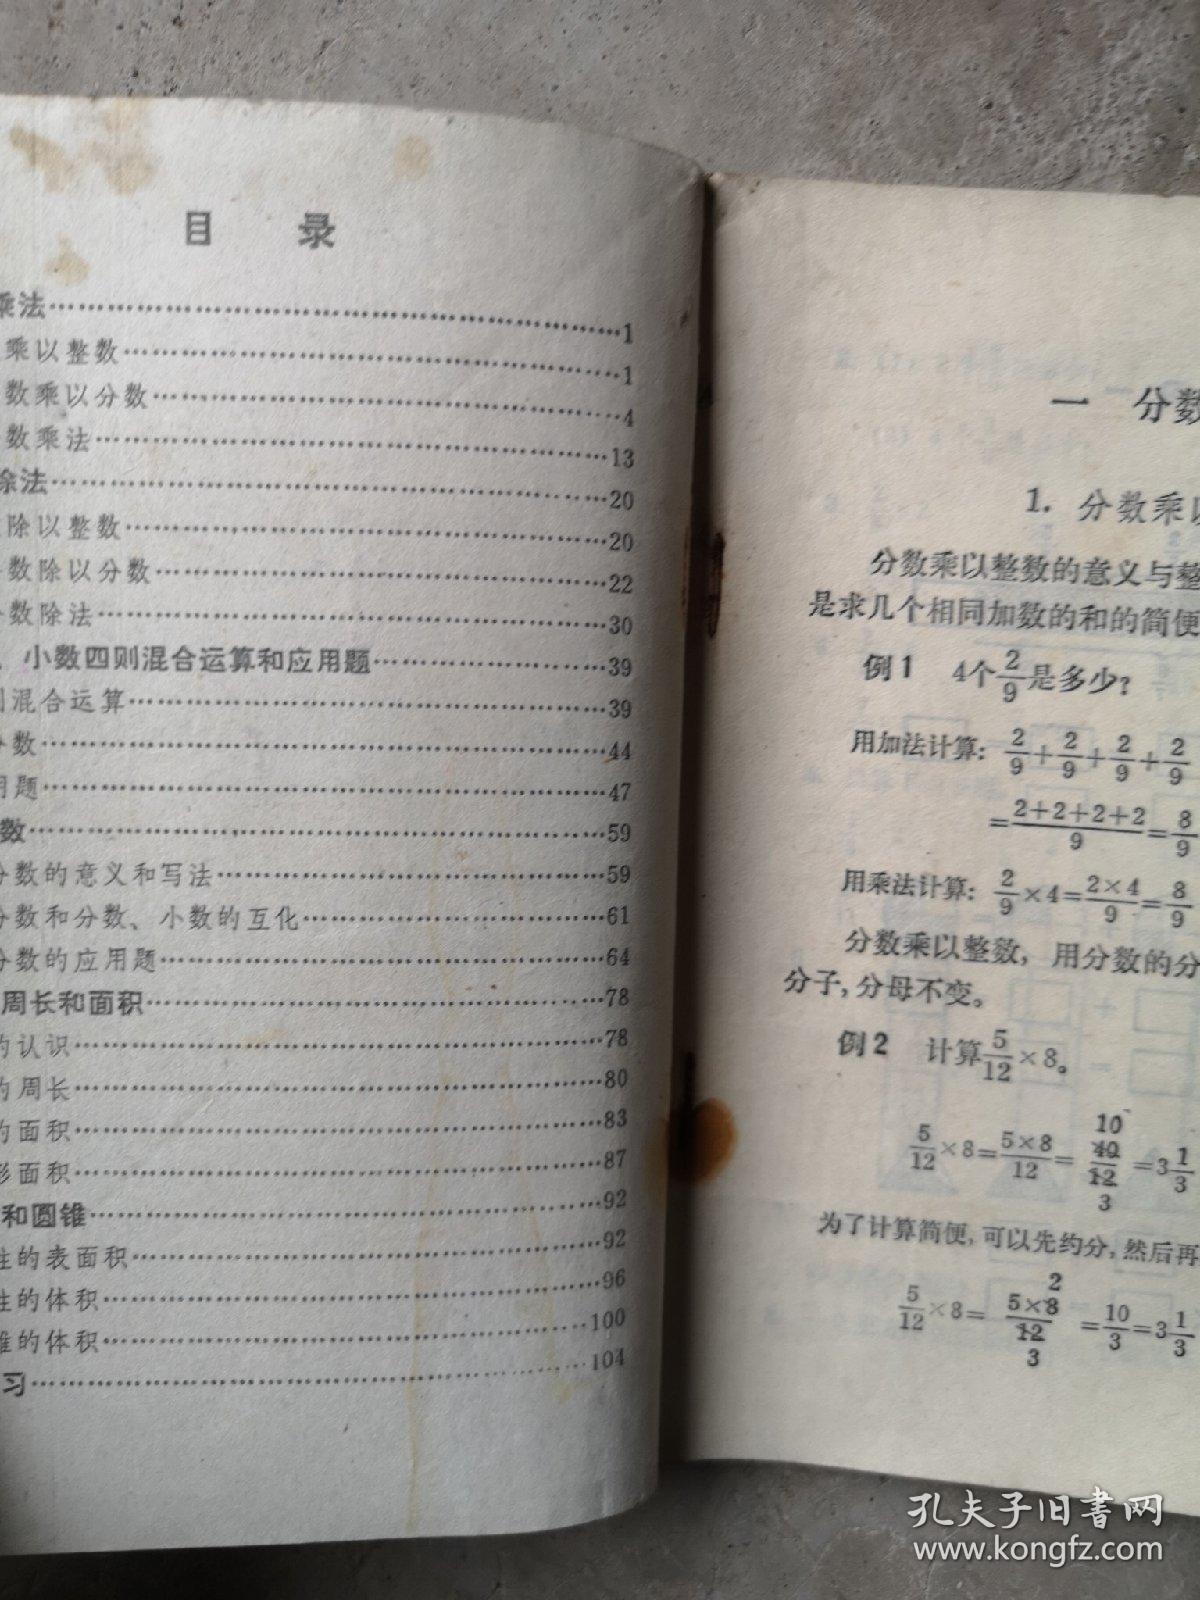 目 录
乘法……1
乘以整数……1
数乘以分数……4
数乘法……13
除法……20
除以整数……20
数除以分数……22
分数除法……30
、小数四则混合运算和应用题……39
则混合运算……39
分数……44
用题……47
数……59
分数的意义和写法……59
分数和分数、小数的互化……61
分数的应用题……64
周长和面积……78
的认识……78
的周长……80
的面积……83
形面积……87
和圆锥……92
柱的表面积……92
柱的体积……96
锥的体积……100
习……104
一 分数
1. 分数乘以
分数乘以整数的意义与整
是求几个相同加数的和的简便
例1 4个2/9是多少?
用加法计算: 2/9+2/9+2/9+2/9
=(2+2+2+2)/9=8/9
用乘法计算: 2/9×4=(2×4)/9=8/9
分数乘以整数, 用分数的分
分子,分母不变。
例2 计算5/12×8。
10
5/12×8=(5×8)/12=40/12=3 1/3
3
为了计算简便,可以先约分,然后再
2
5/12×8=(5×8)/12=10/3=3 1/3
3
孔夫子旧书网
www.kongfz.com